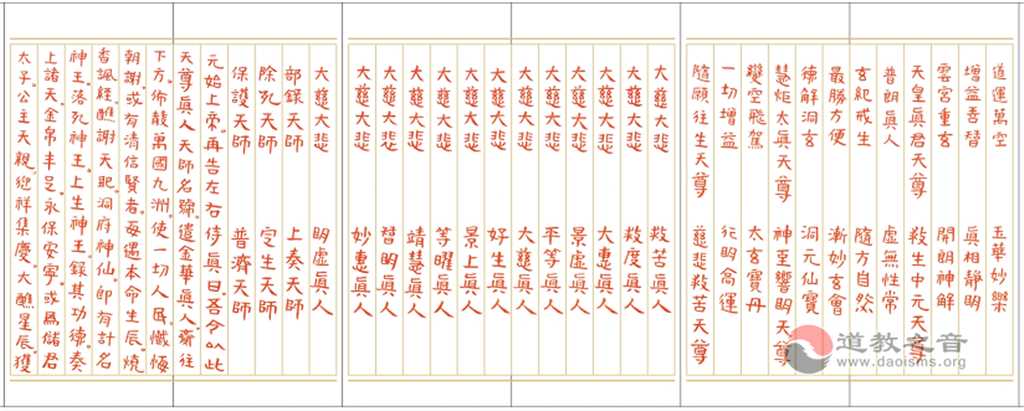 道運萬空 玉華妙樂
增益善替 眞相靜明
雲宮重玄 開朗神解
天皇眞君天尊 救生中元天尊
普朗眞人 虛無性常
玄紀戒生 隨方自然
最勝方便 漸妙玄會
德解洞玄 洞元仙寶
慧炬太眞天尊 神至響明天尊
變空飛駕 太玄寶丹
一切增益 行明高運
隨願往生天尊 慈悲救苦天尊
大慈大悲 救苦眞人
大慈大悲 救度眞人
大慈大悲 大惠眞人
大慈大悲 景虛眞人
大慈大悲 平等眞人
大慈大悲 大慈眞人
大慈大悲 好生眞人
大慈大悲 景上眞人
大慈大悲 等曜眞人
大慈大悲 靖慧眞人
大慈大悲 替明眞人
大慈大悲 妙惠眞人
大慈大悲 明虛眞人
部錄天師 上奏天師
除死天師 定生天師
保護天師 普濟天師
元始上帝。再告左右侍眞曰吾今以此
天尊眞人天師名號。遣金華眞人。齎往
下方。佈馥萬國九洲。使一切人民。懺悔
朝謝。或有清信賢者。每遇本命生辰。燒
香諷經。醮謝天耶。洞府神仙。即有計名
神王。落死神王。上生神王。錄其功德。奏
上諸天。金帛丰足。永保安寧。或爲儲君
太子。公主天親。迎祥集慶。大醮星辰。獲
道教之音
www.daoisms.org